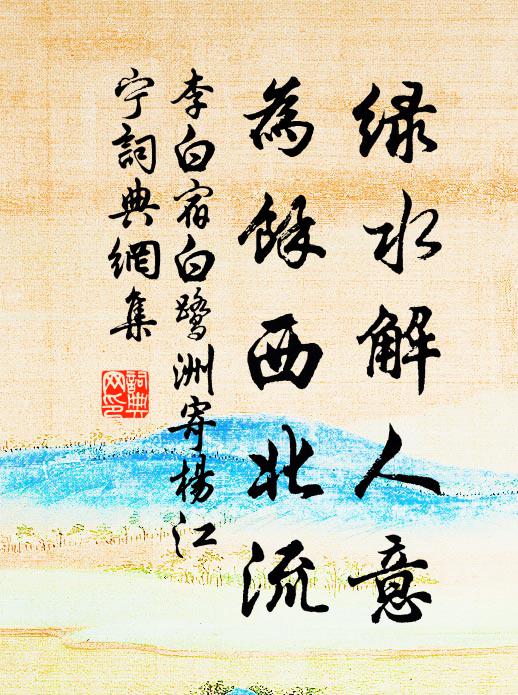 绿水解人意
為餘西北流
李白宿白鹭洲寄楊江
宁詞典網集
詞典
网印